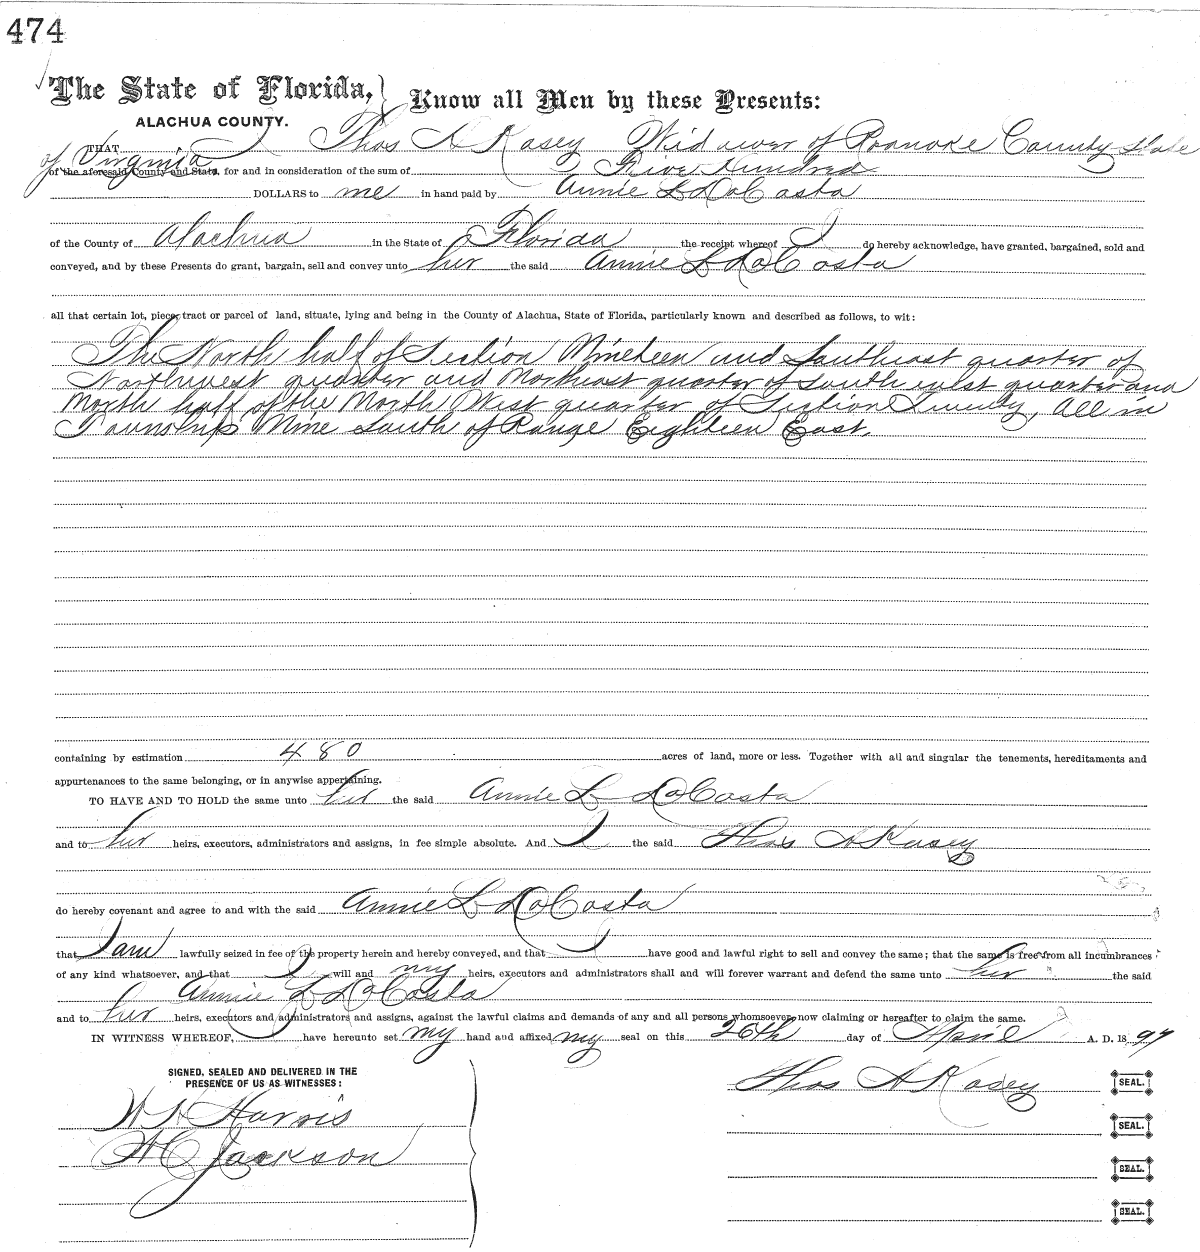 474
The State of Florida, } Know all Men by these Presents:
ALACHUA COUNTY.
THAT Thos A Kasey Widower of Roanoke County State
of Virginia
of the aforesaid County and State, for and in consideration of the sum of Five Hundred
DOLLARS to me in hand paid by Annie L DaCosta
of the County of Alachua in the State of Florida the receipt whereof I do hereby acknowledge, have granted, bargained, sold and
conveyed, and by these Presents do grant, bargain, sell and convey unto her the said Annie L DaCosta
all that certain lot, piece, tract or parcel of land, situate, lying and being in the County of Alachua, State of Florida, particularly known and described as follows, to wit:
The North half of Section Nineteen and Southeast quarter of
Northwest quarter and Northeast quarter of South West quarter and
North half of the North West quarter of Section Twenty, All in
Township Nine South of Range Eighteen East,
containing by estimation 480 acres of land, more or less. Together with all and singular the tenements, hereditaments and
appurtenances to the same belonging, or in anywise appertaining.
TO HAVE AND TO HOLD the same unto her the said Annie L DaCosta
and to her heirs, executors, administrators and assigns, in fee simple absolute. And I the said Thos A Kasey
do hereby covenant and agree to and with the said Annie L DaCosta
that I am lawfully seized in fee of the property herein and hereby conveyed, and that I have good and lawful right to sell and convey the same; that the same is free from all incumbrances
of any kind whatsoever, and that I will and my heirs, executors and administrators shall and will forever warrant and defend the same unto her the said
Annie L DaCosta
and to her heirs, executors and administrators and assigns, against the lawful claims and demands of any and all persons whomsoever, now claiming or hereafter to claim the same.
IN WITNESS WHEREOF, I have hereunto set my hand and affixed my seal on this 26th day of April A. D. 1897
SIGNED, SEALED AND DELIVERED IN THE
PRESENCE OF US AS WITNESSES:
Thos A Kasey SEAL.
Harris
SEAL.
W C Jackson
SEAL.
SEAL.